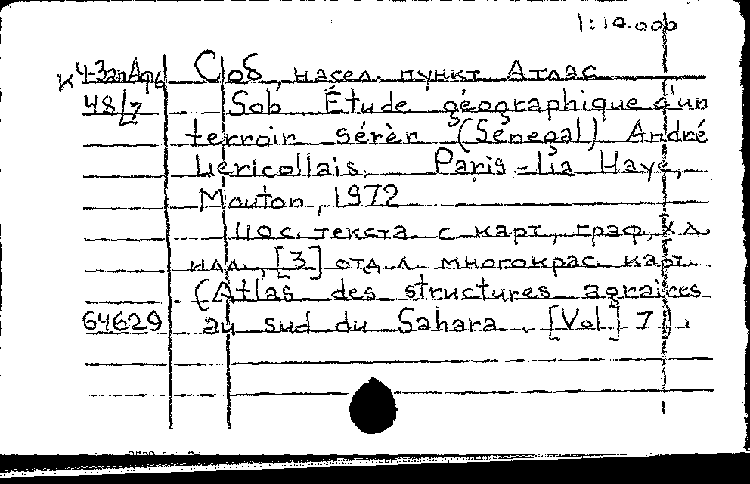 1:10.000
К 4-ЗапАф Соб, насел. пункт Атлас
48/7 Sob Étude géographique d'un
terroir sérèr (Sénégal) André
Lericollais. Paris - La Haye,
Mouton, 1972
110 с. текста с карт., граф., х.л.
илл., [3] отд. л. многокрас. карт.
(Atlas des structures agraires
64629 au sud du Sahara. [Vol.] 7).